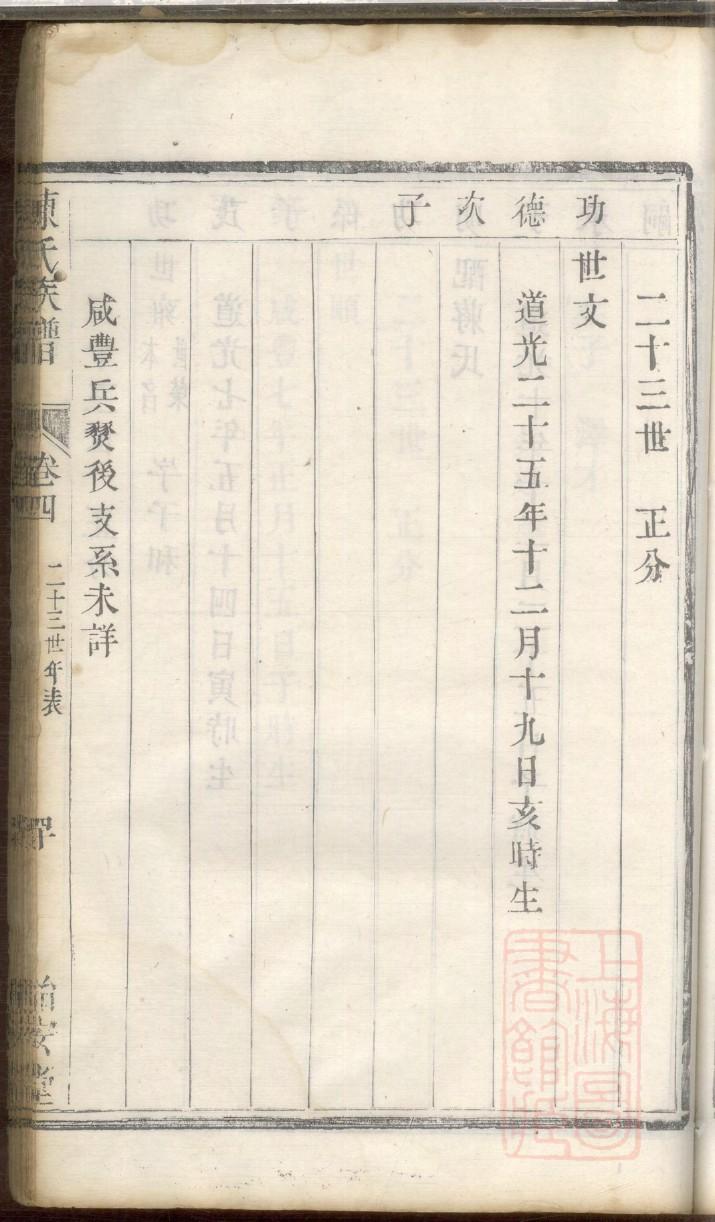 二十三世 正分
功德次子
世文
道光二十五年十二月十九日亥時生
咸豐兵燹後支系未詳
陳氏族譜
卷四
二十三世年表
上海圖
書館藏